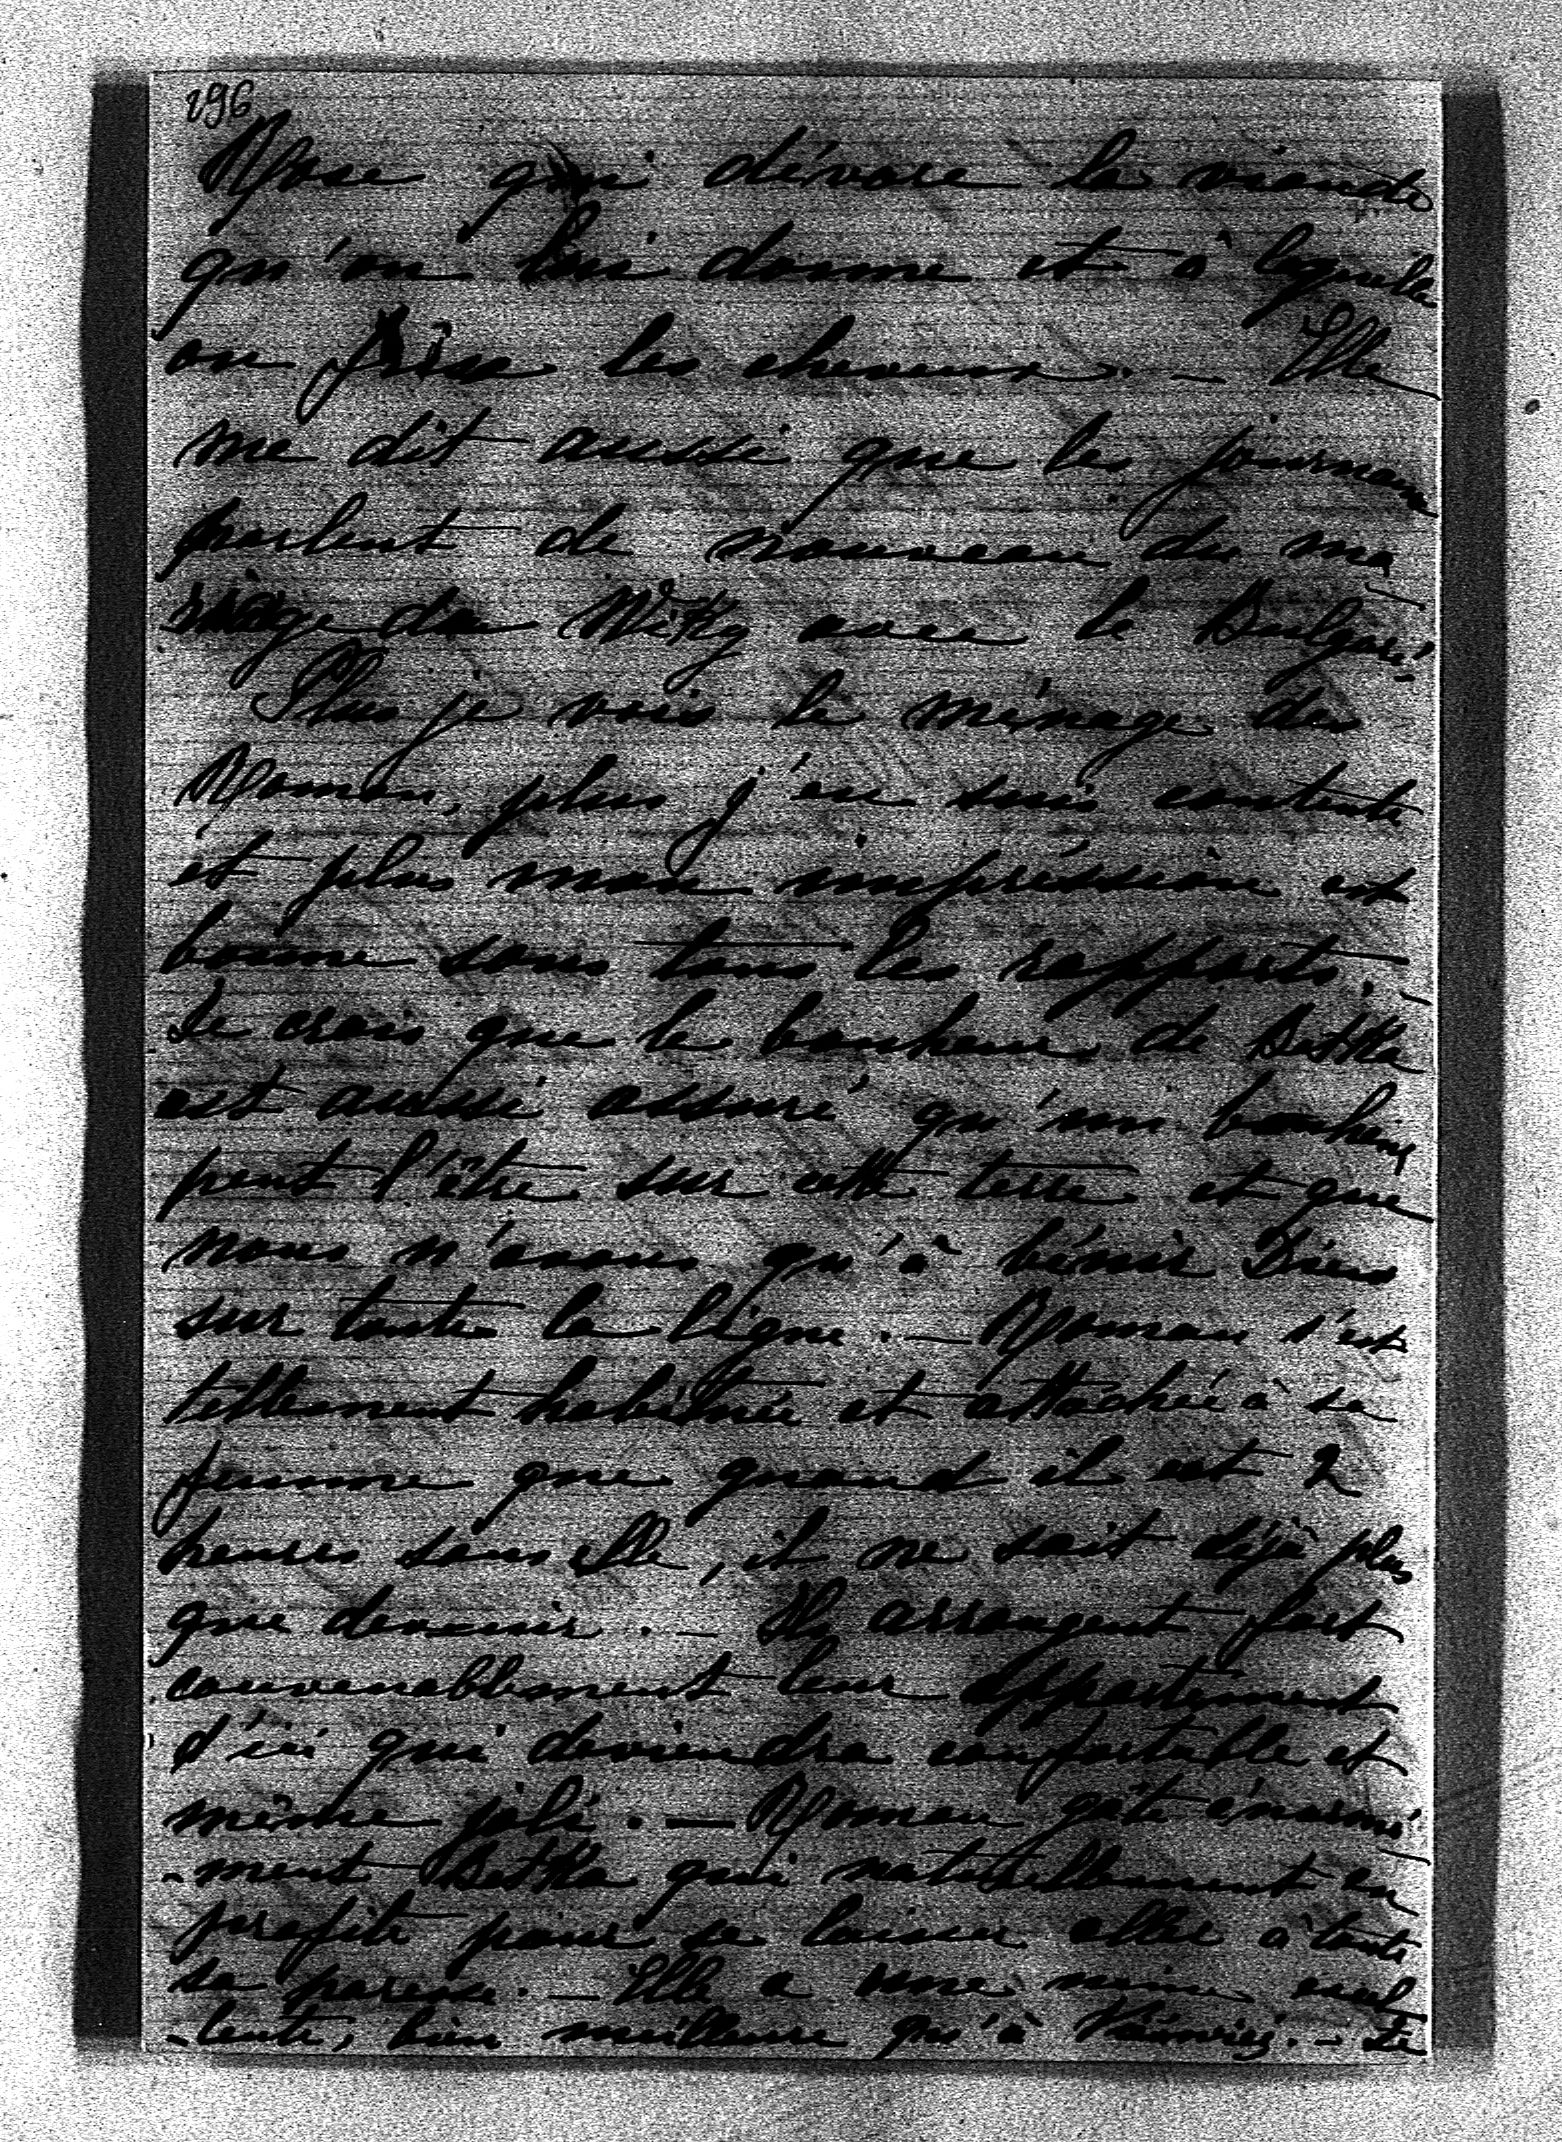 296
Rose qui dévore la viande
qu'on lui donne et à laquelle
on frise les cheveux. — Elle
me dit aussi que les journaux
parlent de nouveau du ma
riage de avec le Bulgare.
Plus je vois le ménage des
Roman, plus j'en suis contente
et plus mon impréssion est
bonne sous tous les rapports. —
Je crois que le bonheur de Betka
est aussi assuré qu'un bonheur
peut l'être sur cette terre et que
nous n'avons qu'à bénir Dieu
sur toute la ligne. — Roman s'est
tellement habitué et attaché à sa
femme que quand il est 2
heures sans elle, il ne sait déjà plus
que devenir. — Ils arrangent fort
convenablement leur appartement
d'ici qui deviendra confortable et
même joli. — Roman gâte énormé
-ment Betka qui naturellement en
profite pour se laisser aller à toute
sa paresse. — Elle a une mine excel
-lente, bien meilleure qu'à — Je